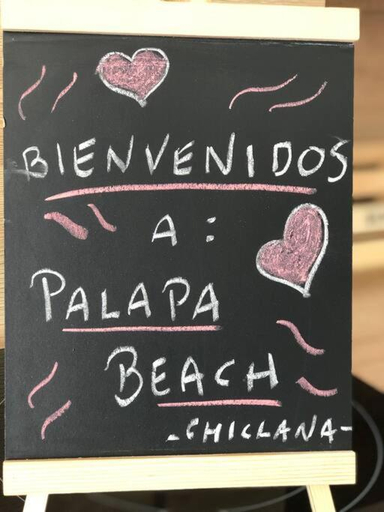 BIENVENIDOS
A:
PALAPA
BEACH
-CHICLANA-